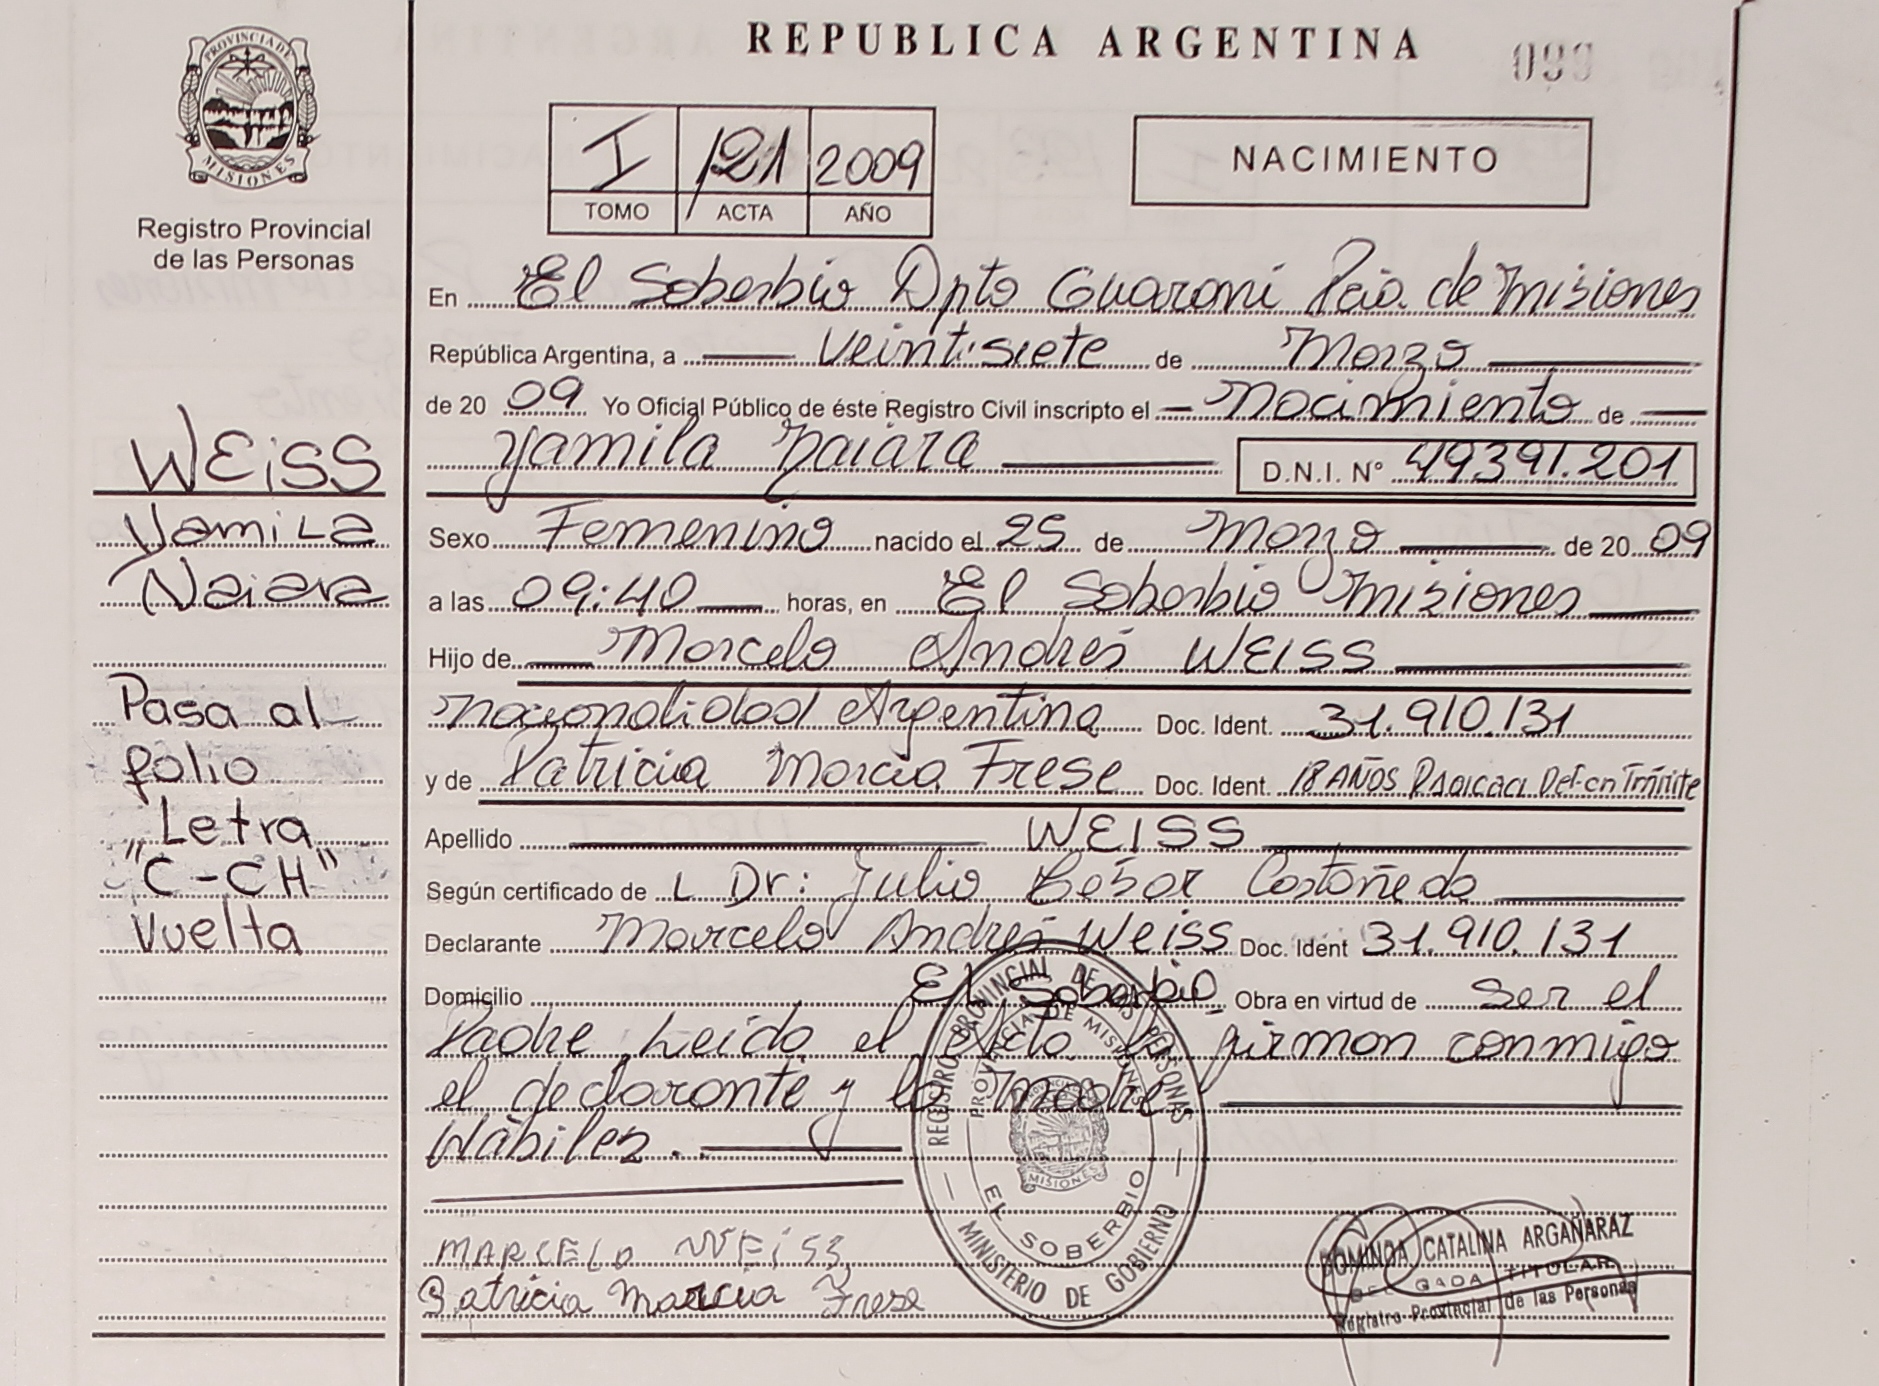 REPUBLICA ARGENTINA
099
PROVINCIA DE
MISIONES
Registro Provincial
de las Personas
I 121 2009
TOMO ACTA AÑO
NACIMIENTO
En El Soberbio Dpto Guaraní Pcia. de Misiones
República Argentina, a veintisiete de Marzo
de 20 09 Yo Oficial Público de éste Registro Civil inscripto el Nacimiento de
Yamila Naiara D.N.I. Nº 49391.201
Sexo Femenino nacido el 25 de Marzo de 20 09
a las 09:40 horas, en El Soberbio Misiones
Hijo de Marcelo Andrés WEISS
nacionalidad Argentina Doc. Ident. 31.910.131
y de Patricia Marcia Frese Doc. Ident. 18 AÑOS Radicaci Def. en Trámite
Apellido WEISS
Según certificado de L Dr: Julio Cesar Castañeda
Declarante Marcelo Andrés Weiss Doc. Ident 31.910.131
Domicilio El Soberbio Obra en virtud de ser el
Padre Leido el Acta firman conmigo
el declarante y la madre
Hábiles.
MARCELO WEISS
Patricia Marcia Frese
WEISS
Yamila
Naiara
Pasa al
folio
Letra
"C-CH"
Vuelta
REGISTRO PROVINCIAL DE LAS PERSONAS
PROVINCIA DE MISIONES
MISIONES
EL SOBERBIO
MINISTERIO DE GOBIERNO
DOMINGA CATALINA ARGAÑARAZ
DELEGADA TITULAR
Registro Provincial de las Personas